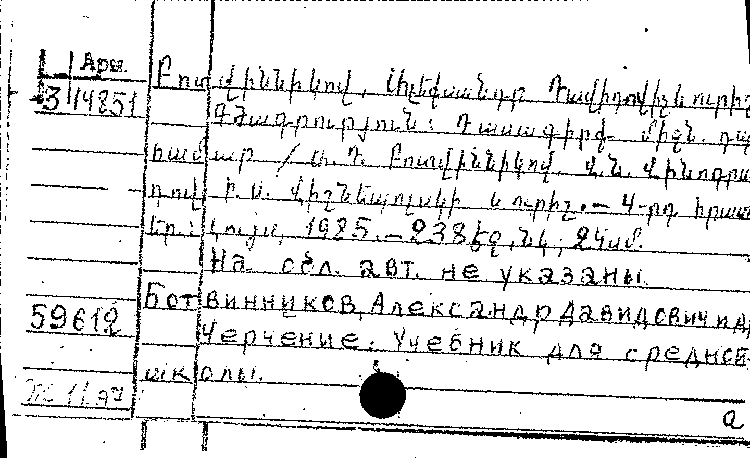 Арм.
3 14851
Բոտվիննիկով, Ալեքսանդր Դավիդովիչ և ուրիշ
Գծագրություն: Դասագիրք միջն. դպ
համար / Ա. Դ. Բոտվիննիկով, Վ. Ն. Վինոգրա
դով, Ի. Ս. Վիշնեպոլսկի և ուրիշ. — 4-րդ հրատ
Եր.: Լույս, 1985. — 238 էջ, նկ., 24սմ.
На обл. авт. не указаны.
Ботвинников, Александр Давидович и др
59612
Черчение: Учебник для средней
школы.
a